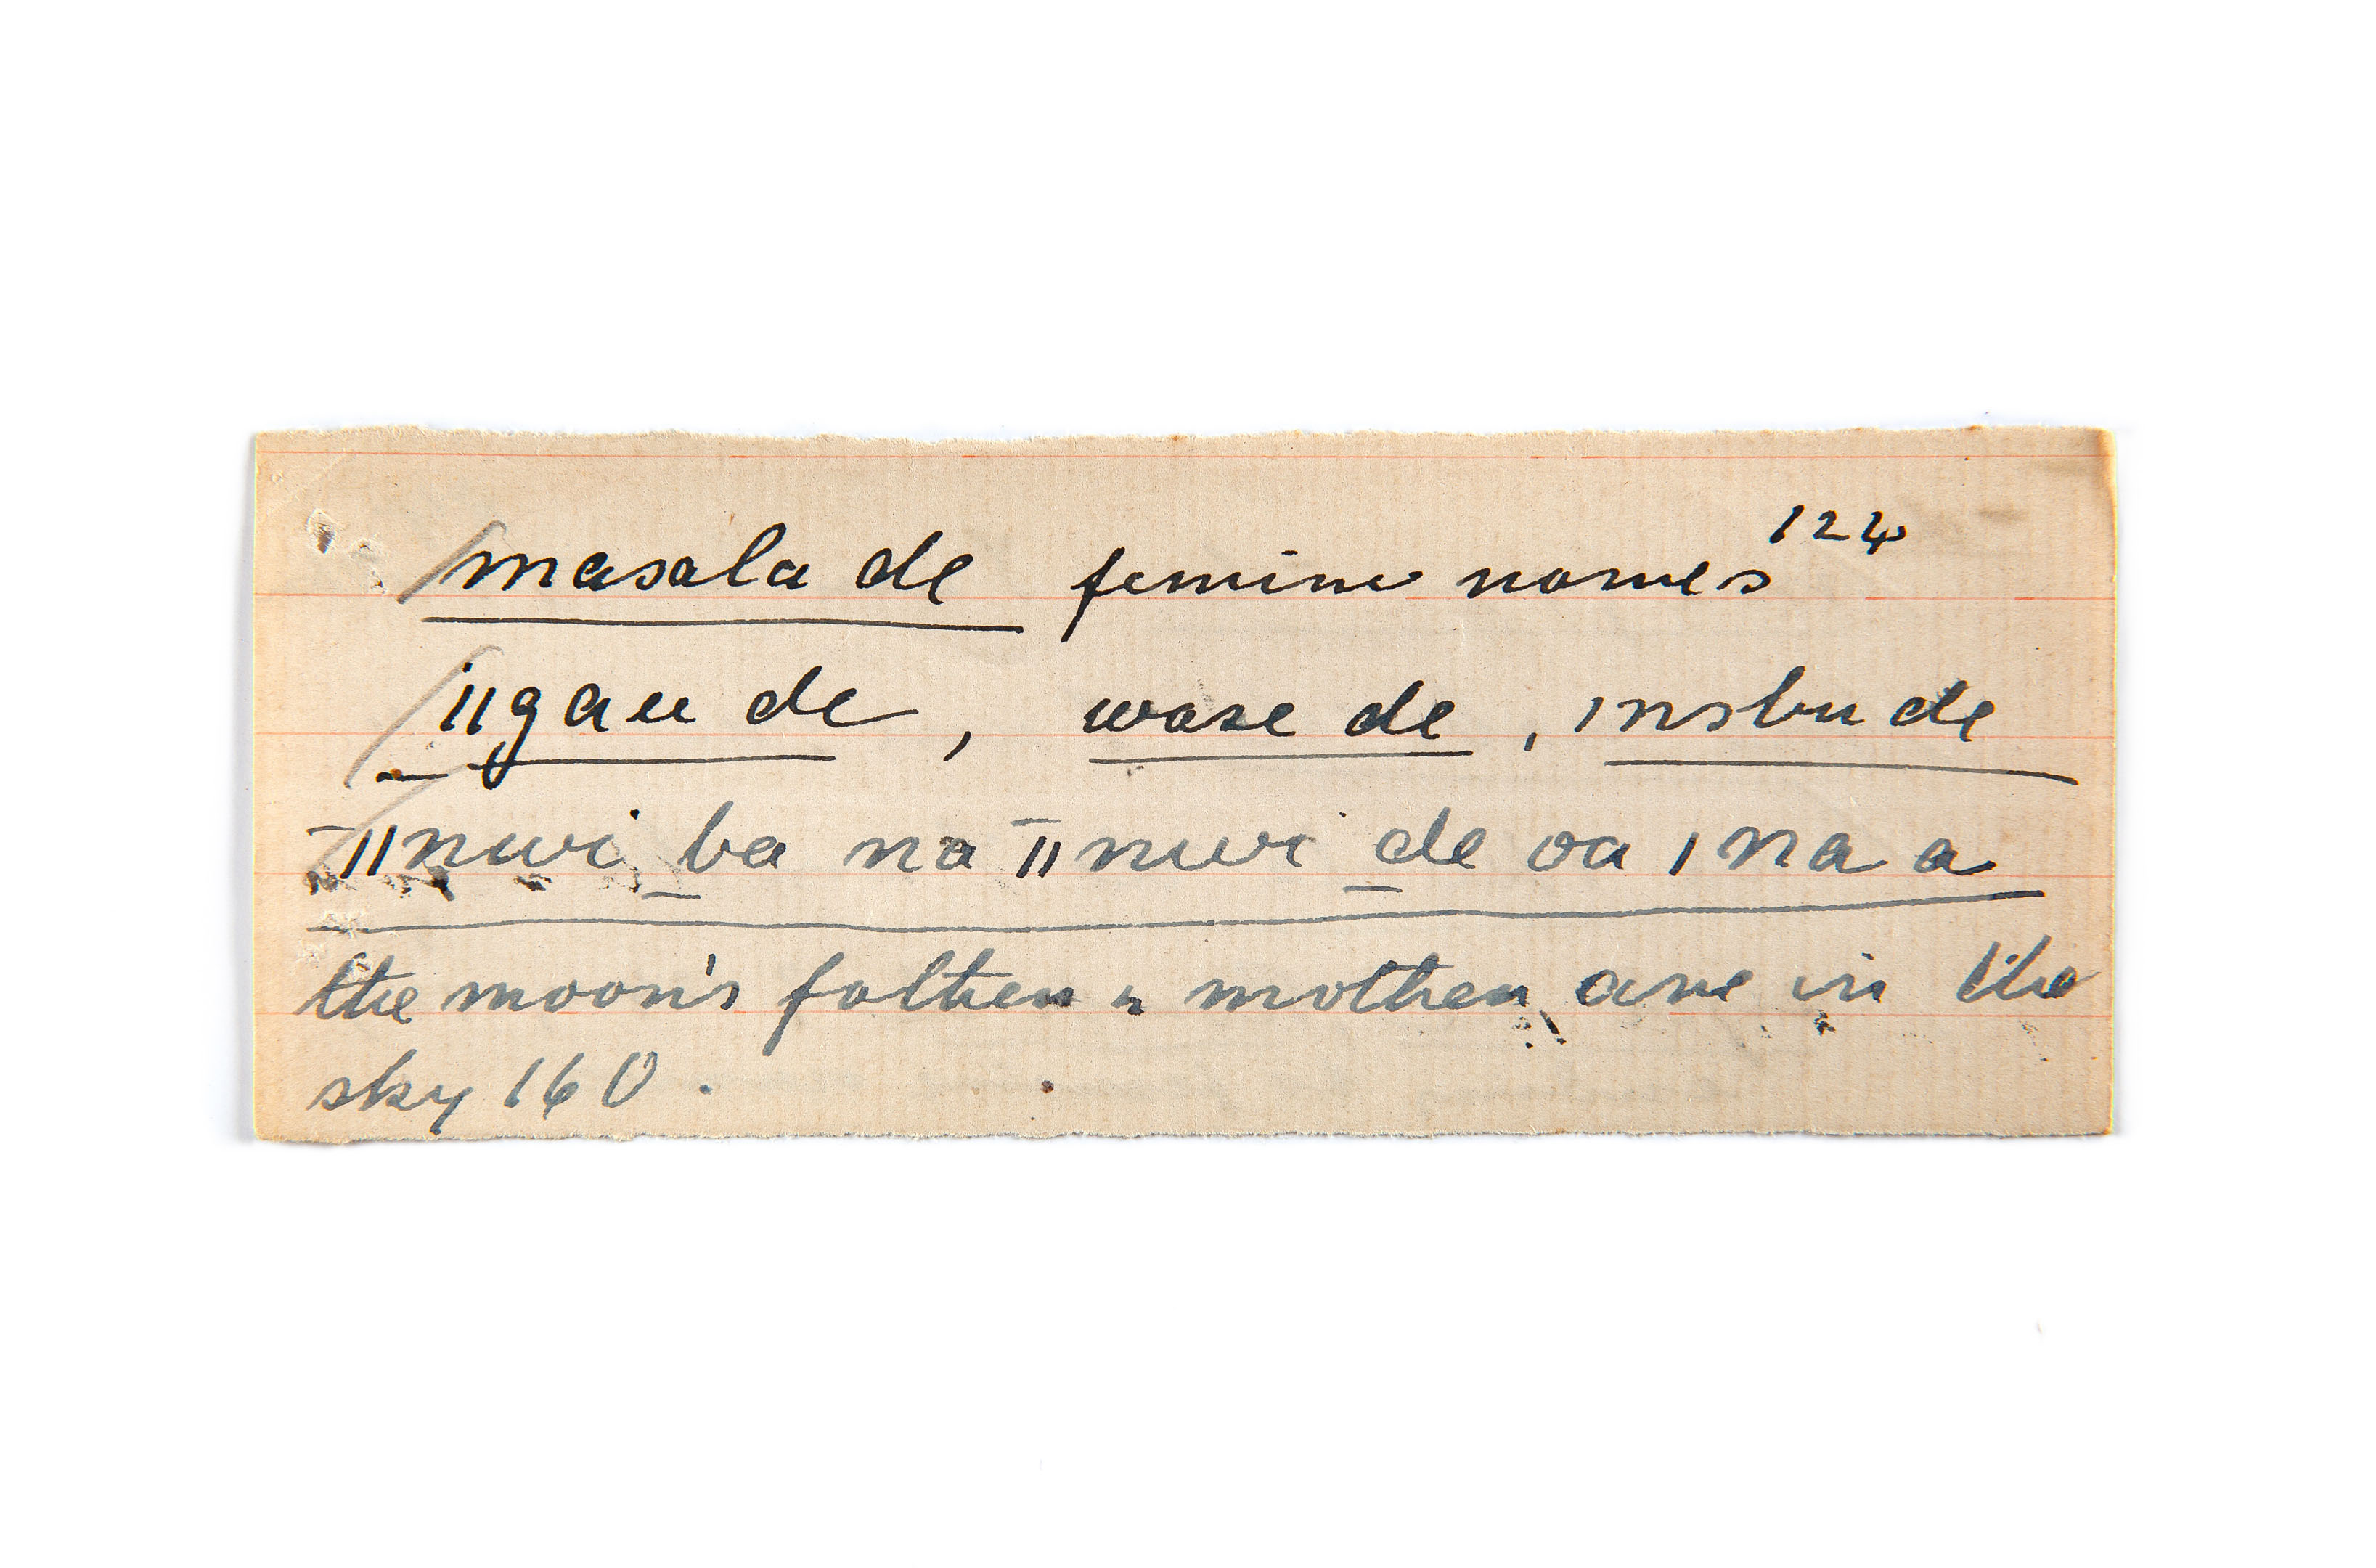 masala de feminine names 124
ǁgau de, wase de, ǀnsbu de
ǁnwi ba na ǁnwi de oa ǀna a
the moon's father & mother are in the
sky 160.